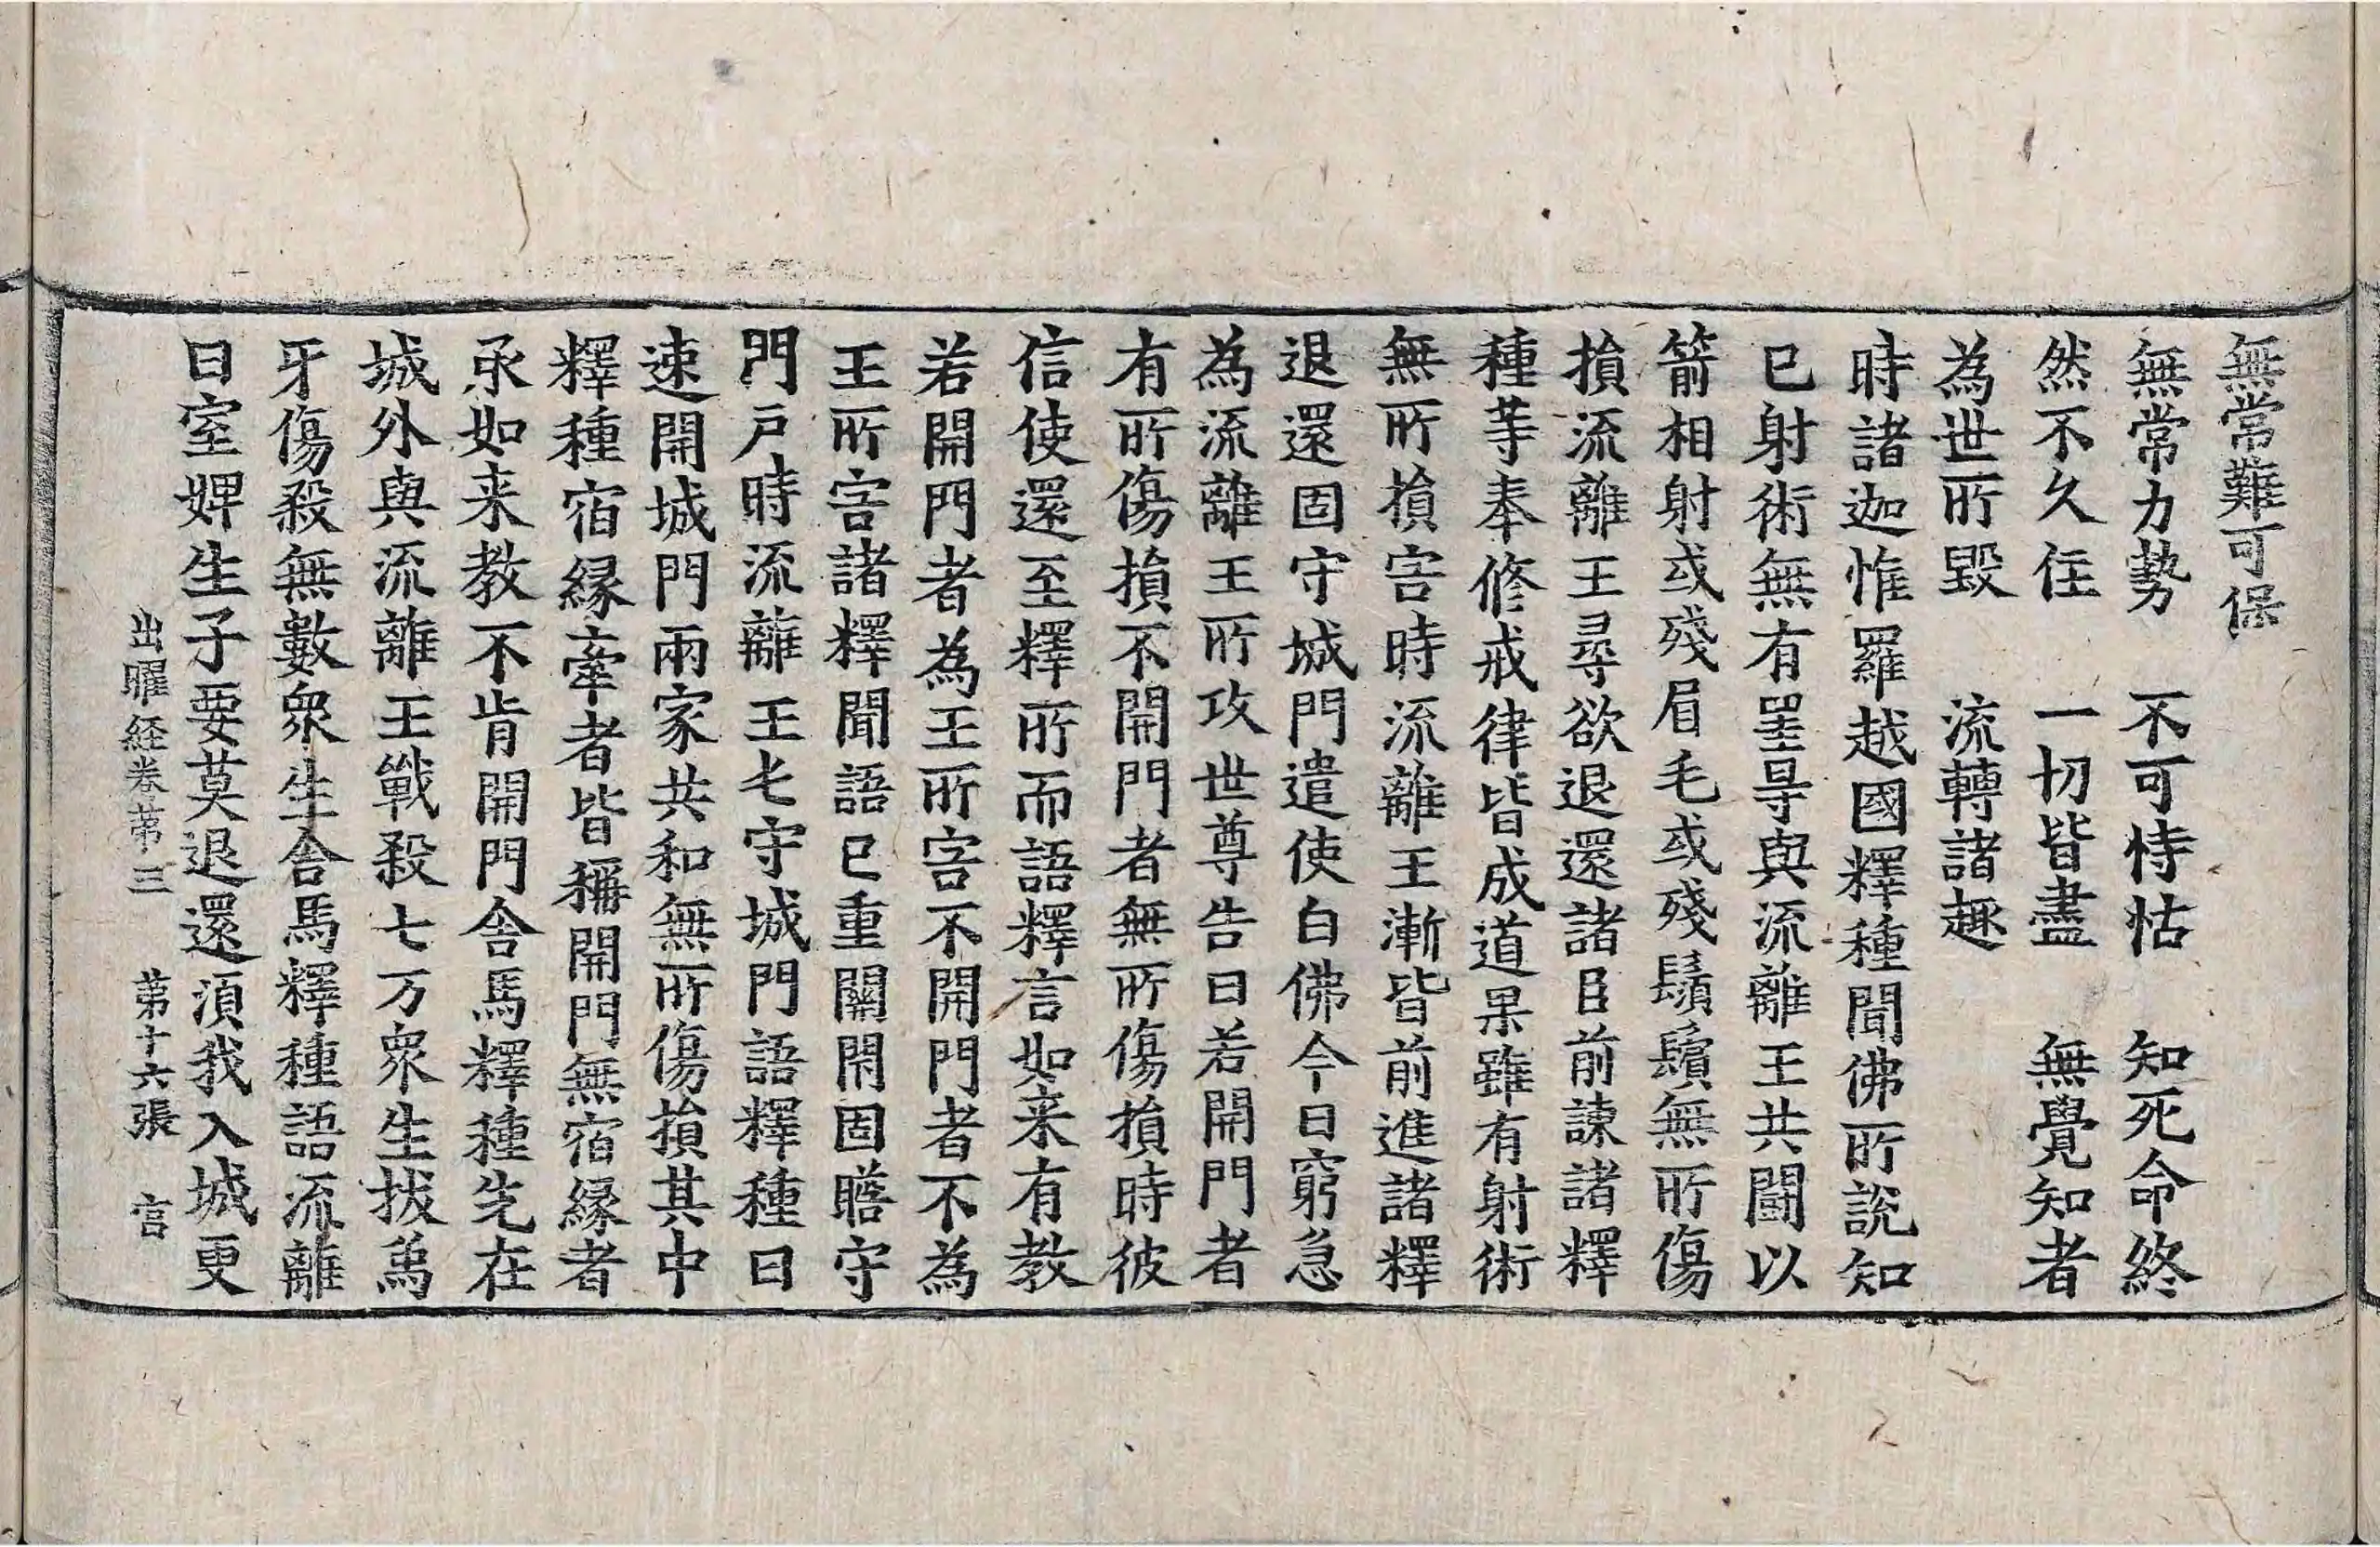 無常難可保
無常力勢　不可恃怙　知死命終
然不久住　一切皆盡　無覺知者
為世所毀　流轉諸趣
時諸迦惟羅越國釋種聞佛所說知
已射術無有罣㝵與流離王共鬪以
箭相射或殘眉毛或殘鬚鬢無所傷
損流離王尋欲退還諸臣前諫諸釋
種等奉修戒律皆成道果雖有射術
無所損害時流離王漸皆前進諸釋
退還固守城門遣使白佛今日窮急
為流離王所攻世尊告曰若開門者
有所傷損不開門者無所傷損時彼
信使還至釋所而語釋言如来有教
若開門者為王所害不開門者不為
王所害諸釋聞語已重關閇固牆守
門戶時流離王七守城門語釋種曰
速開城門兩家共和無所傷損其中
釋種宿緣牽者皆稱開門無宿緣者
承如来教不肯開門舍馬釋種先在
城外與流離王戰殺七万衆生拔為
牙傷殺無數衆生舍馬釋種語流離
曰室婢生子要莫退還湏我入城更
出曜経卷第三　第十六張　言